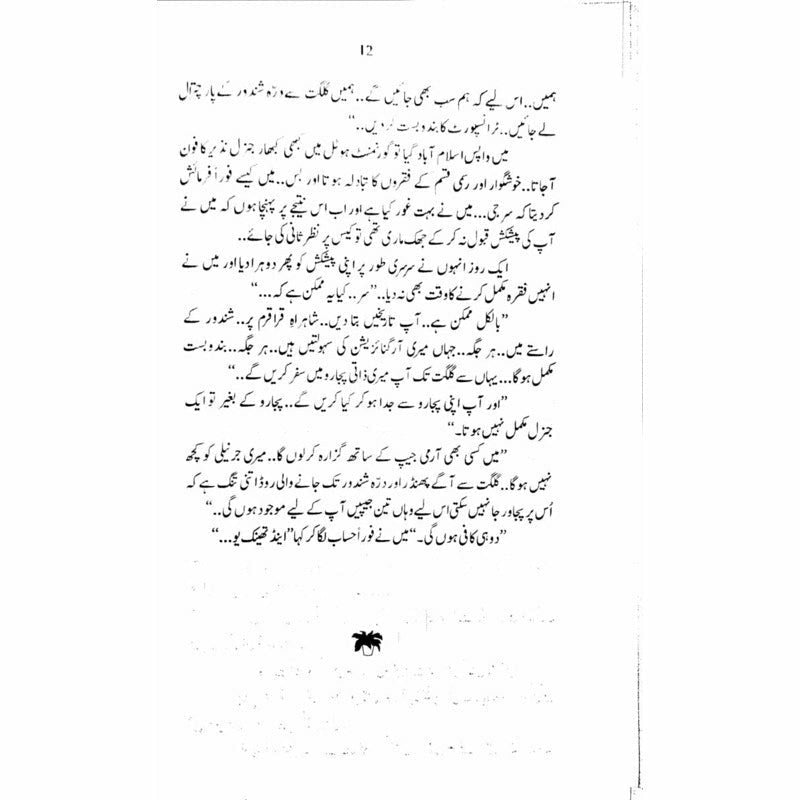 12
ہمیں..اس لیے کہ ہم سب بھی جائیں گے..ہمیں گلگت سے درّہ شندور کے پار چترال
لے جائیں..ٹرانسپورٹ کا بندوبست کر دیں..‘‘
میں واپس اسلام آباد گیا تو گورنمنٹ ہوٹل میں کبھی کبھار جنرل نذیر کا فون
آ جاتا..خوشگوار اور رسمی قسم کے فقروں کا تبادلہ ہوتا اور بس..میں کیسے فوراً فرمائش
کر دیتا کہ سر جی...میں نے بہت غور کیا ہے اور اب اس نتیجے پر پہنچا ہوں کہ میں نے
آپ کی پیشکش قبول نہ کر کے جھک ماری تھی تو کیس پر نظر ثانی کی جائے..
ایک روز انہوں نے سرسری طور پر اپنی پیشکش کو پھر دوہرا دیا اور میں نے
انہیں فقرہ مکمل کرنے کا وقت بھی نہ دیا..’’سر..کیا یہ ممکن ہے کہ...‘‘
’’بالکل ممکن ہے..آپ تاریخیں بتا دیں..شاہراہِ قراقرم پر..شندور کے
راستے میں..ہر جگہ..جہاں میری آرگنائزیشن کی سہولتیں ہیں..ہر جگہ..بندوبست
مکمل ہو گا...یہاں سے گلگت تک آپ میری ذاتی پجارو میں سفر کریں گے..‘‘
’’اور آپ اپنی پجارو سے جدا ہو کر کیا کریں گے..پجارو کے بغیر تو ایک
جنرل مکمل نہیں ہوتا۔‘‘
’’میں کسی بھی آرمی جیپ کے ساتھ گزارہ کر لوں گا..میری جرنیلی کو کچھ
نہیں ہو گا..گلگت سے آگے پھنڈر اور درّہ شندور تک جانے والی روڈ اتنی تنگ ہے کہ
اُس پر پجاور جا نہیں سکتی اس لیے وہاں تین جیپیں آپ کے لیے موجود ہوں گی..‘‘
’’دو ہی کافی ہوں گی۔‘‘میں نے فوراً حساب لگا کر کہا’’اینڈ تھینک یو...‘‘